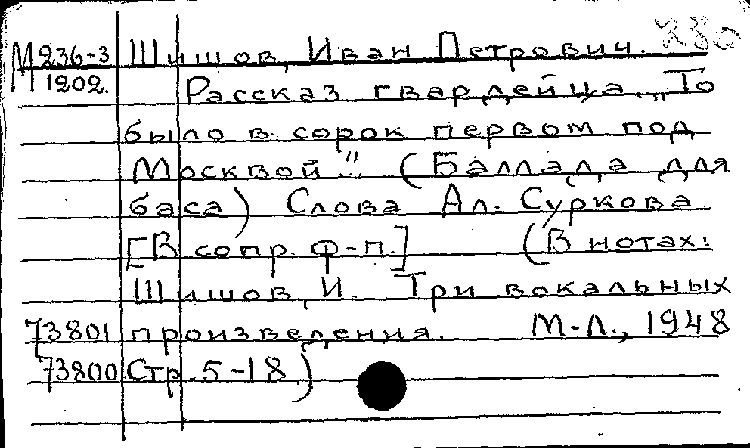 М 236-3 Шишов, Иван Петрович.
1202. Рассказ гвардейца „То
было в сорок первом под
Москвой" (Баллада для
баса) Слова Ал. Суркова
[В сопр. ф-п.] (В нотах:
Шишов, И. Три вокальных
73801 произведения. М-Л., 1948
73800 Стр. 5-18)